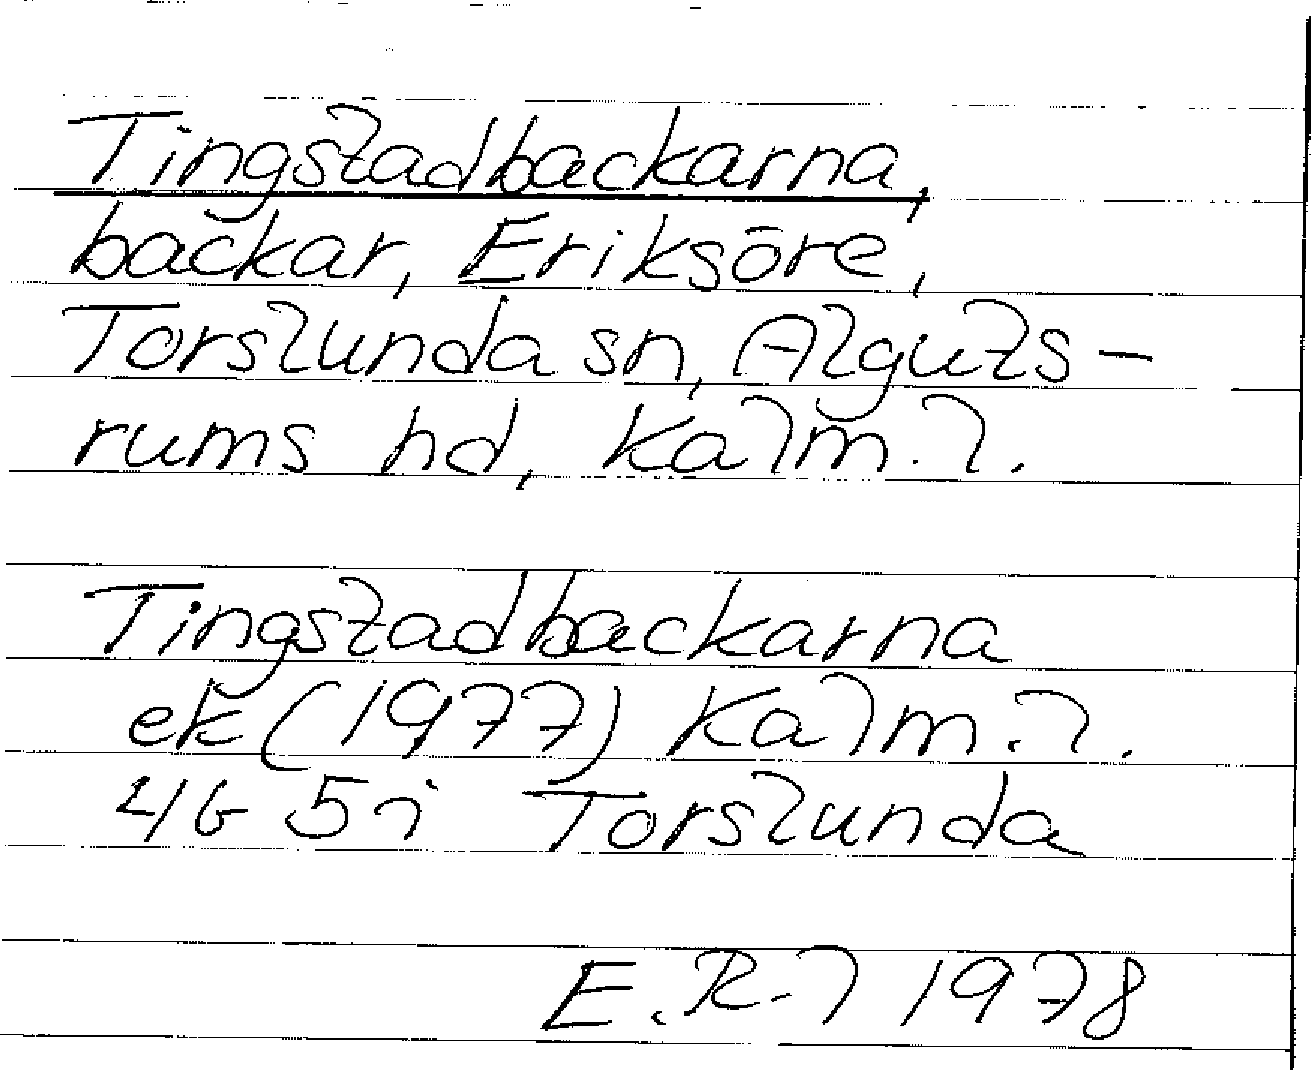 Tingstadbackarna,
backar, Eriksöre,
Torslunda sn, Alguts-
rums hd, Kalm. l.
Tingstadbackarna
ek (1977) Kalm. l.
4G 5i Torslunda
E. R. 1978